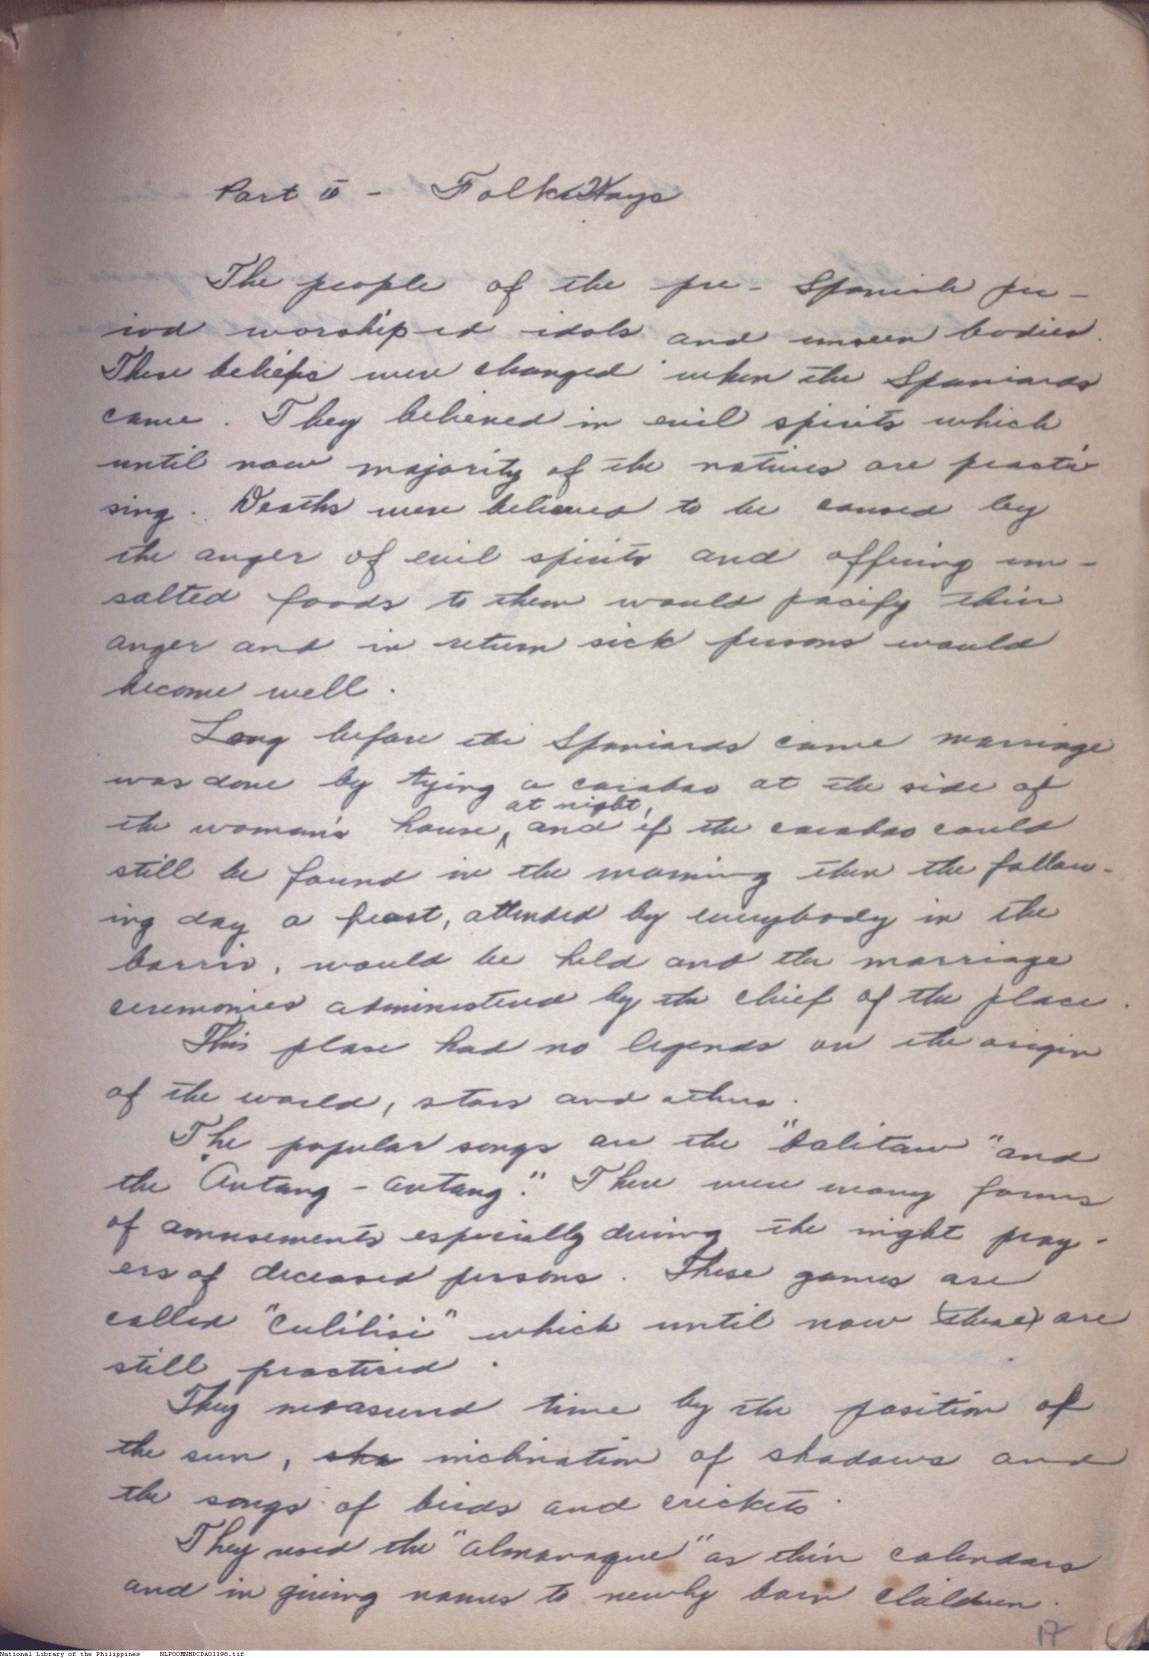 Part II - Folk Ways
The people of the pre- Spanish pe-
riod worshiped idols and unseen bodies.
These beliefs were changed when the Spaniards
came. They believed in evil spirits which
until now majority of the natives are practi
sing. Deaths were believed to be caused by
the anger of evil spirits and offering un-
salted foods to them would pacify their
anger and in return sick persons would
become well.
Long before the Spaniards came marriage
was done by tying a carabao at the side of
at night,
the woman's house, and if the carabao could
still be found in the morning then the follow-
ing day a feast, attended by everybody in the
barrio, would be held and the marriage
ceremonies administered by the chief of the place.
This place had no legends on the origin
of the world, stars and others.
The popular songs are the "balitaw" and
the "Antang-antang." There were many forms
of amusements especially during the night pray-
ers of deceased persons. These games are
called "Culilisi" which until now (these) are
still practiced.
They measured time by the position of
the sun, inclination of shadows and
the songs of birds and crickets.
They used the "almanaque" as their calendars
and in giving names to newly born children.
17
National Library of the Philippines NLPOOMNHDCDA01198.tif